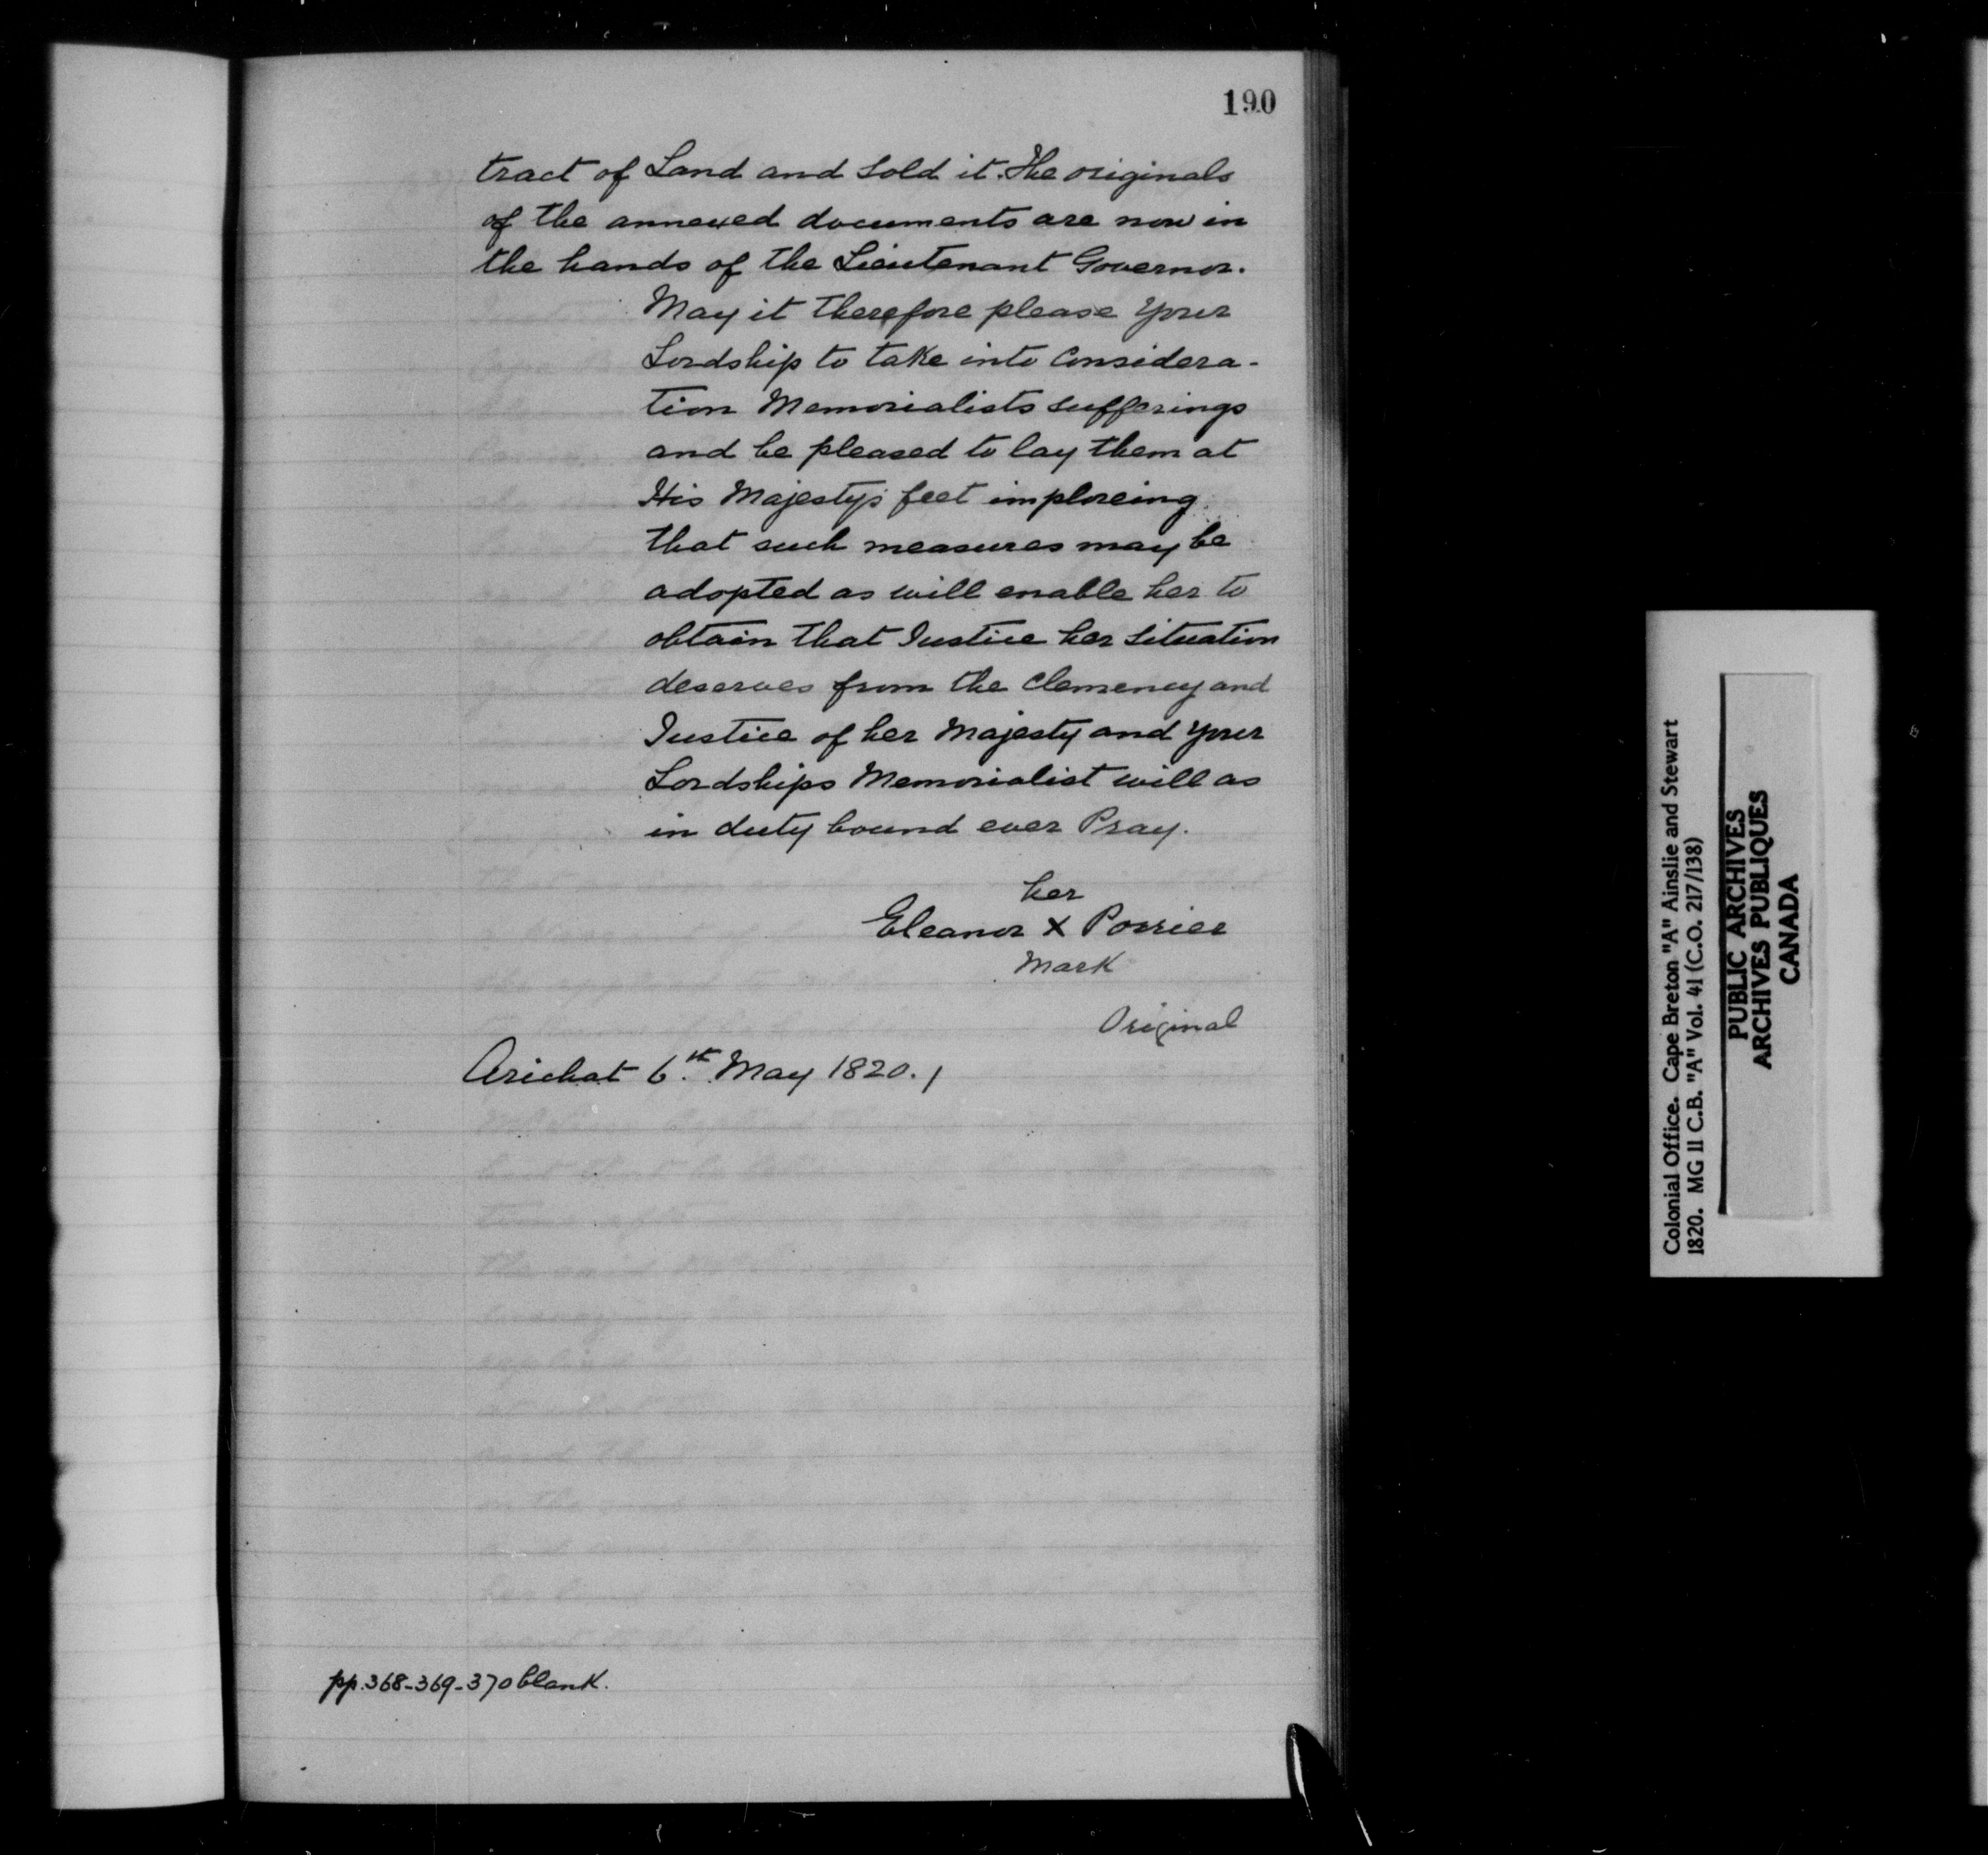 190
tract of Land and Sold it. The originals
of the annexed documents are now in
the hands of the Lieutenant Governor.
May it therefore please Your
Lordship to take into Considera-
tion Memorialists sufferings
and be pleased to lay them at
His Majesty's feet imploreing
that such measures may be
adopted as will enable her to
obtain that Justice her situation
deserves from the Clemency and
Justice of her Majesty and Your
Lordships Memorialist will as
in duty bound ever Pray.
her
Eleanor X Porrier
Mark
Original
Arichat 6th. May 1820.
pp. 368-369-370 blank.
Colonial Office. Cape Breton "A" Ainslie and Stewart
1820. MG 11 C.B. "A" Vol. 41 (C.O. 217/138)
PUBLIC ARCHIVES
ARCHIVES PUBLIQUES
CANADA